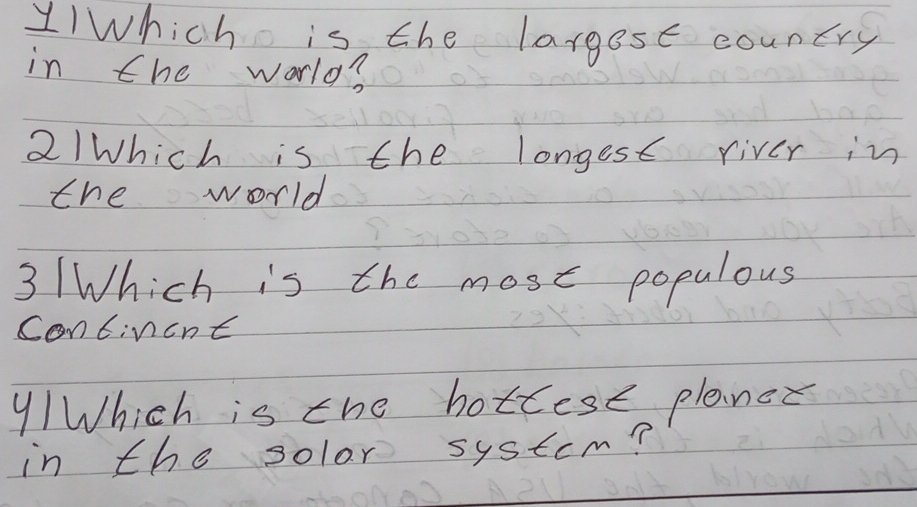 1) Which is the largest country
in the world?
2) Which is the longest river in
the world
3) Which is the most populous
continent
4) Which is the hottest planet
in the solar system?